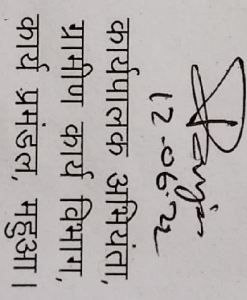 12.06.24
कार्यपालक अभियंता,
ग्रामीण कार्य विभाग,
कार्य प्रमंडल, महुआ।